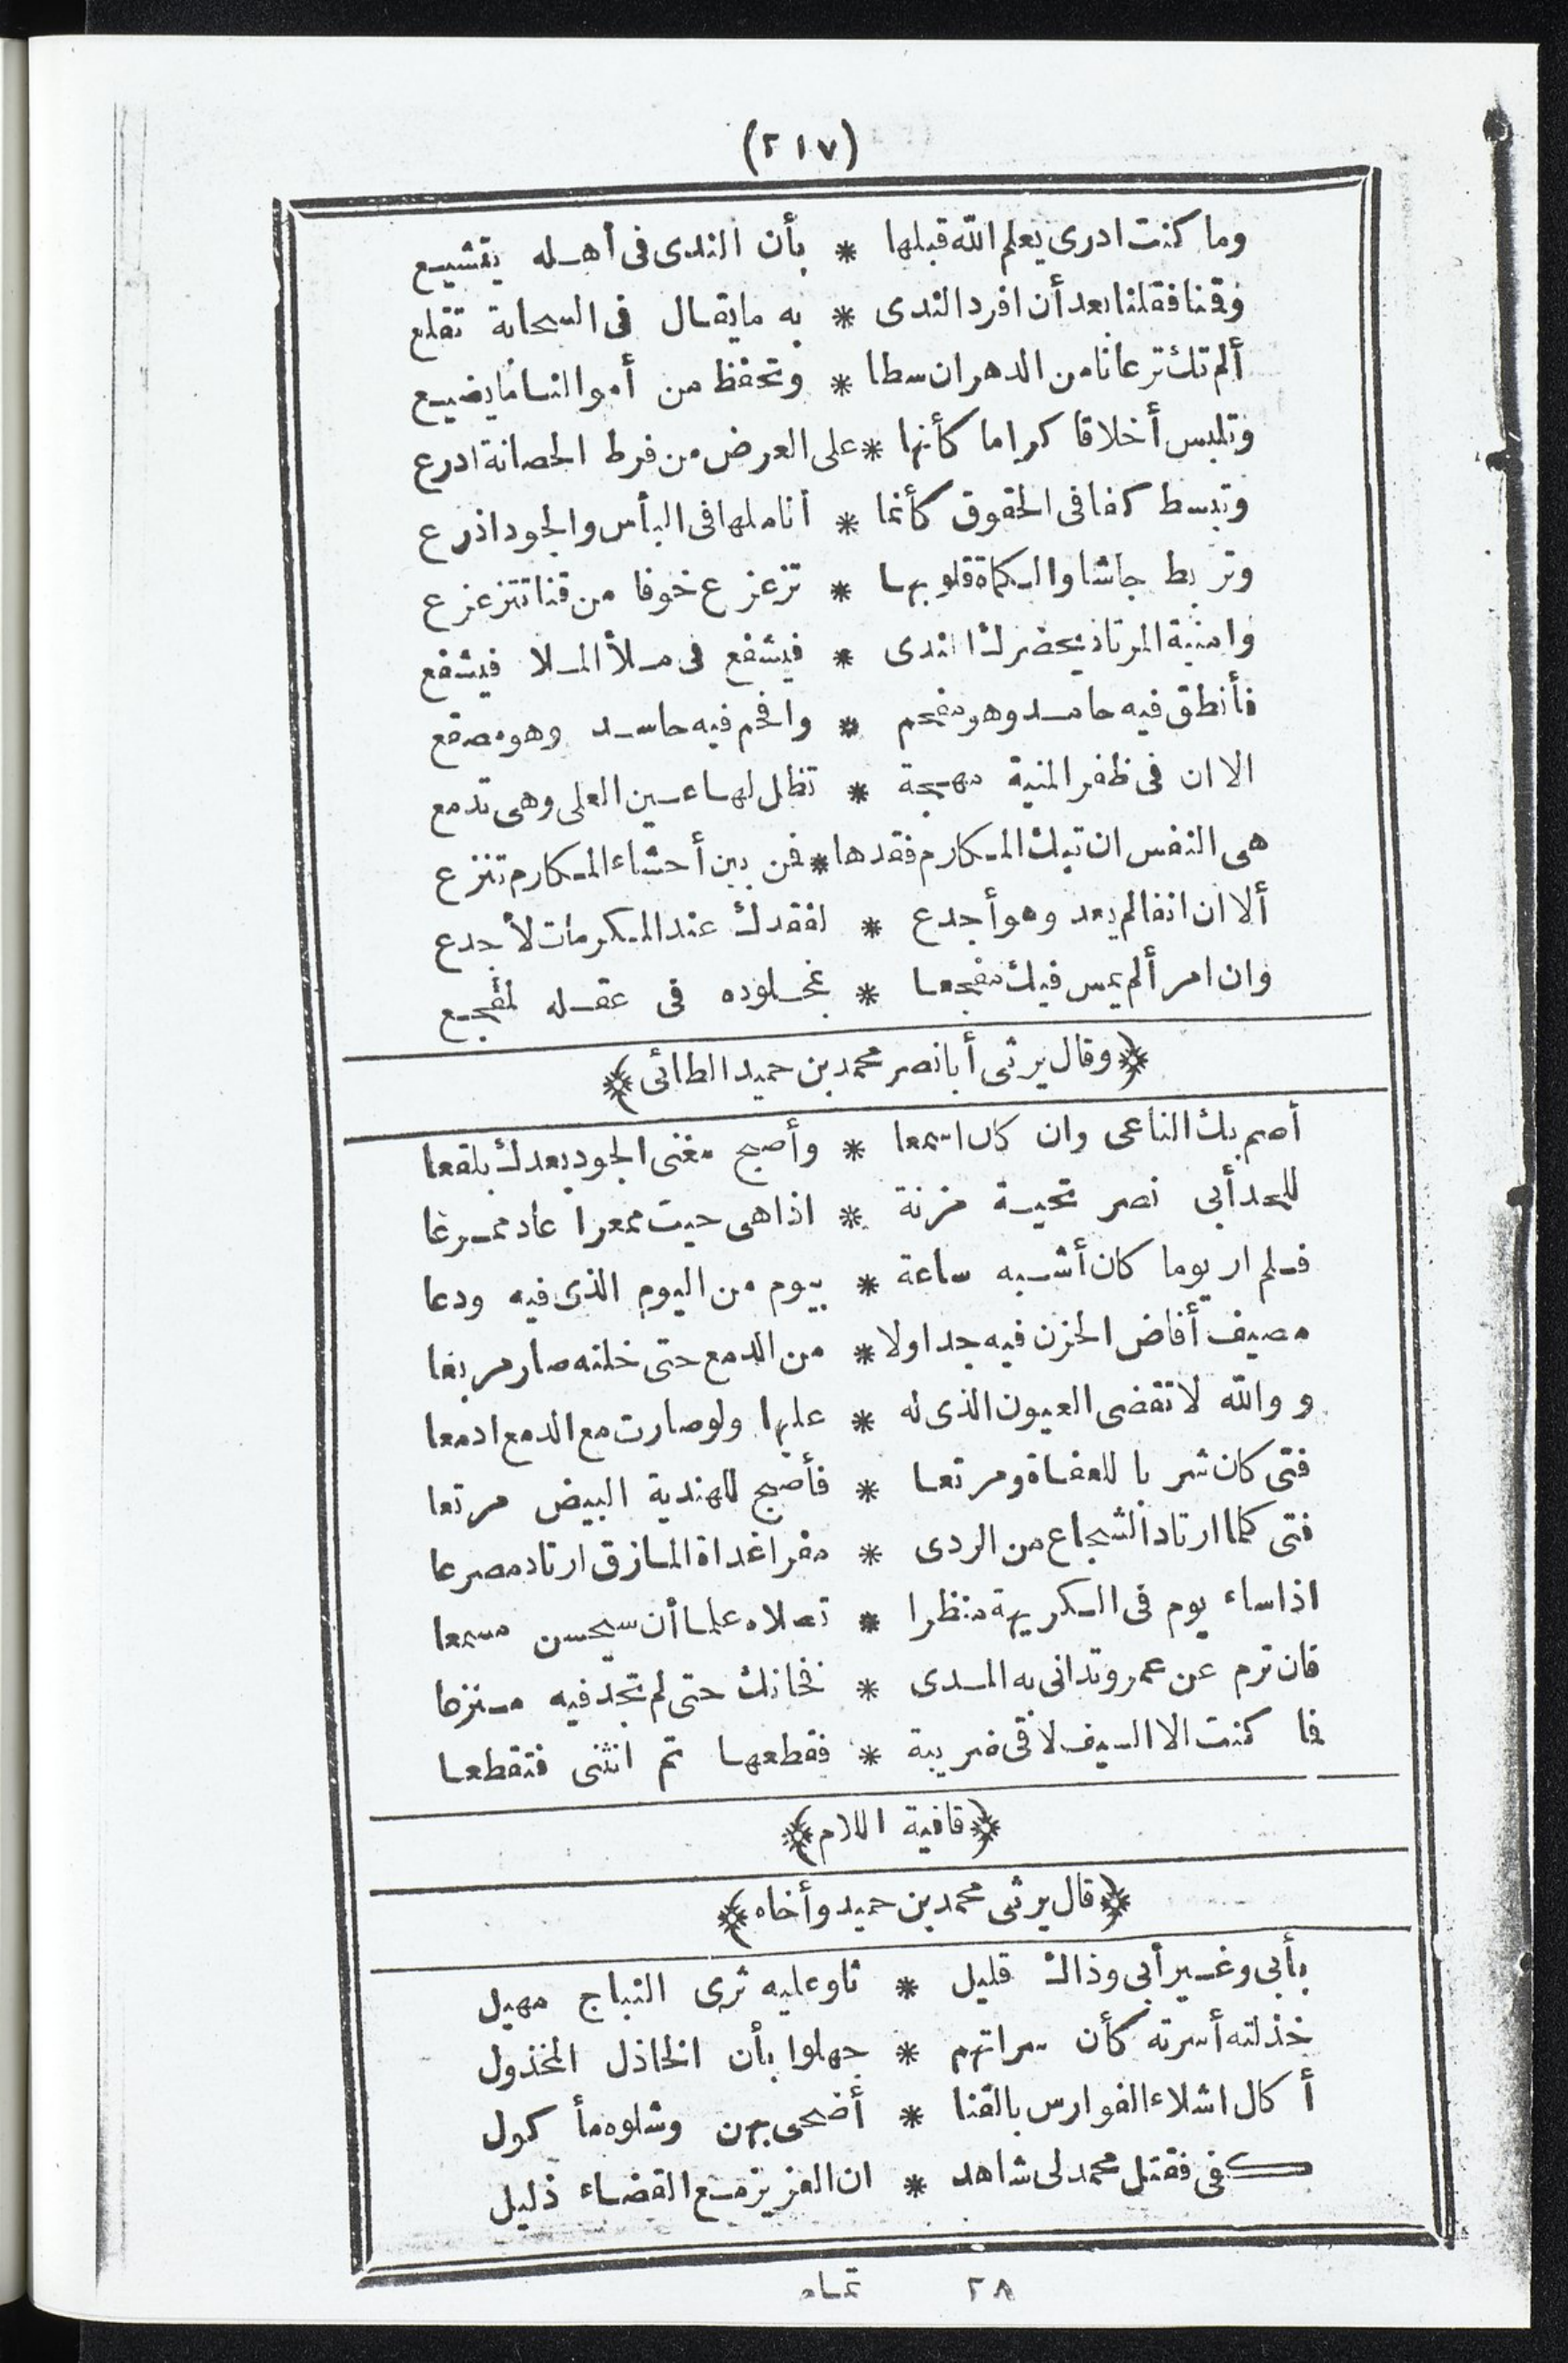 (٢١٧)
وما كنت ادرى يعلم الله قبلها * بأن الندى فى أهله يتشيع
وقنا فقلنا بعد أن افرد الندى * به ما يقال فى السحابة تقلع
ألم تك ترعانا من الدهر ان سطا * وتحفظ من أموالنا ما يضيع
وتلبس أخلاقا كراما كأنها * على العرض من فرط الحصانة ادرع
وتبسط كفا فى الحقوق كأنما * انامله افى البأس والجود اذرع
وتربط جاشا والكماة قلوبها * تزعزع خوفا من قنا تتزعزع
وامنية المرتاد يحضرك الندى * فيشفع فى ملأ الملا فيشفع
فأنطق فيه حامد وهو مفحم * وافحم فيه حاسد وهو مصقع
الا ان فى ظفر المنية مهجة * تظل لها عين العلى وهى تدمع
هى النفس ان تبك المكارم فقدها * فمن بين أحشاء المكارم تنزع
ألا ان انفا لم يعد وهو أجدع * لفقدك عند المكرمات لأجدع
وان امرأ لم يمس فيك مفجعا * بمجلوده فى عقله لمفجع
﴿وقال يرثى أبا نصر محمد بن حميد الطائى﴾
أصم بك الناعى وان كان اسمعا * وأصبح مغنى الجود بعدك بلقعا
للحد أبى نصر تحية مزنة * اذا هى حيت ممعرا عاد ممرعا
فلم ار يوما كان أشبه ساعة * بيوم من اليوم الذى فيه ودعا
مصيف أفاض الحزن فيه جداولا * من الدمع حتى خلته صار مربعا
ووالله لا تقضى العيون الذى له * عليها ولو صارت مع الدمع ادمعا
فتى كان شربا للعفاة ومرتعا * فأصبح للهندية البيض مرتعا
فتى كلما ارتاد الشجاع من الردى * مفرا غداة المازق ارتاد مصرعا
اذا ساء يوم فى الكريهة منظرا * تصلاه علما أن سيحسن مسمعا
فان ترم عن عمر وتدانى به المدى * فخانك حتى لم تجد فيه منزعا
فما كنت الا السيف لاقى ضريبة * فقطعها ثم انثنى فتقطعا
﴿قافية اللام﴾
﴿قال يرثى محمد بن حميد وأخاه﴾
بأبى وغير أبى وذاك قليل * ثاو عليه ثرى النباج مهيل
خذلته أسرته كأن سراتهم * جهلوا بأن الخاذل المخذول
أكال اشلاء الفوارس بالقنا * أضحى بهن وشلوه مأكول
كفى فقتل محمد لى شاهد * ان العزيز مع القضاء ذليل
٢٨ تمام